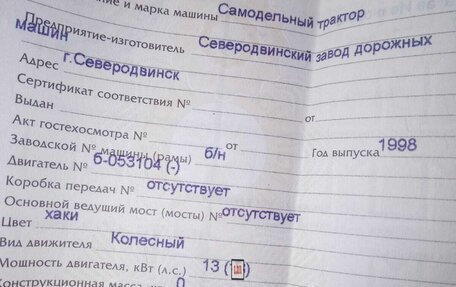 ние и марка машины Самодельный трактор
Предприятие-изготовитель Северодвинский завод дорожных
машин
Адрес г.Северодвинск
Сертификат соответствия №
Выдан от
Акт гостехосмотра №
Заводской № машины (рамы) б/н от Год выпуска 1998
Двигатель № б-053104 (-)
Коробка передач № отсутствует
Основной ведущий мост (мосты) № отсутствует
Цвет хаки
Вид движителя Колесный
Мощность двигателя, кВт (л.с.) 13
Конструкционная масса, 0